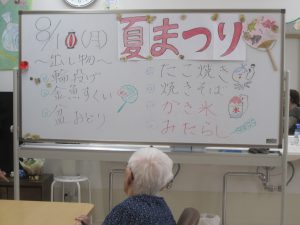 8/10(月)
夏まつり
〜出し物〜
輪投げ
金魚すくい
盆おどり
たこ焼き
焼きそば
かき氷
みたらし